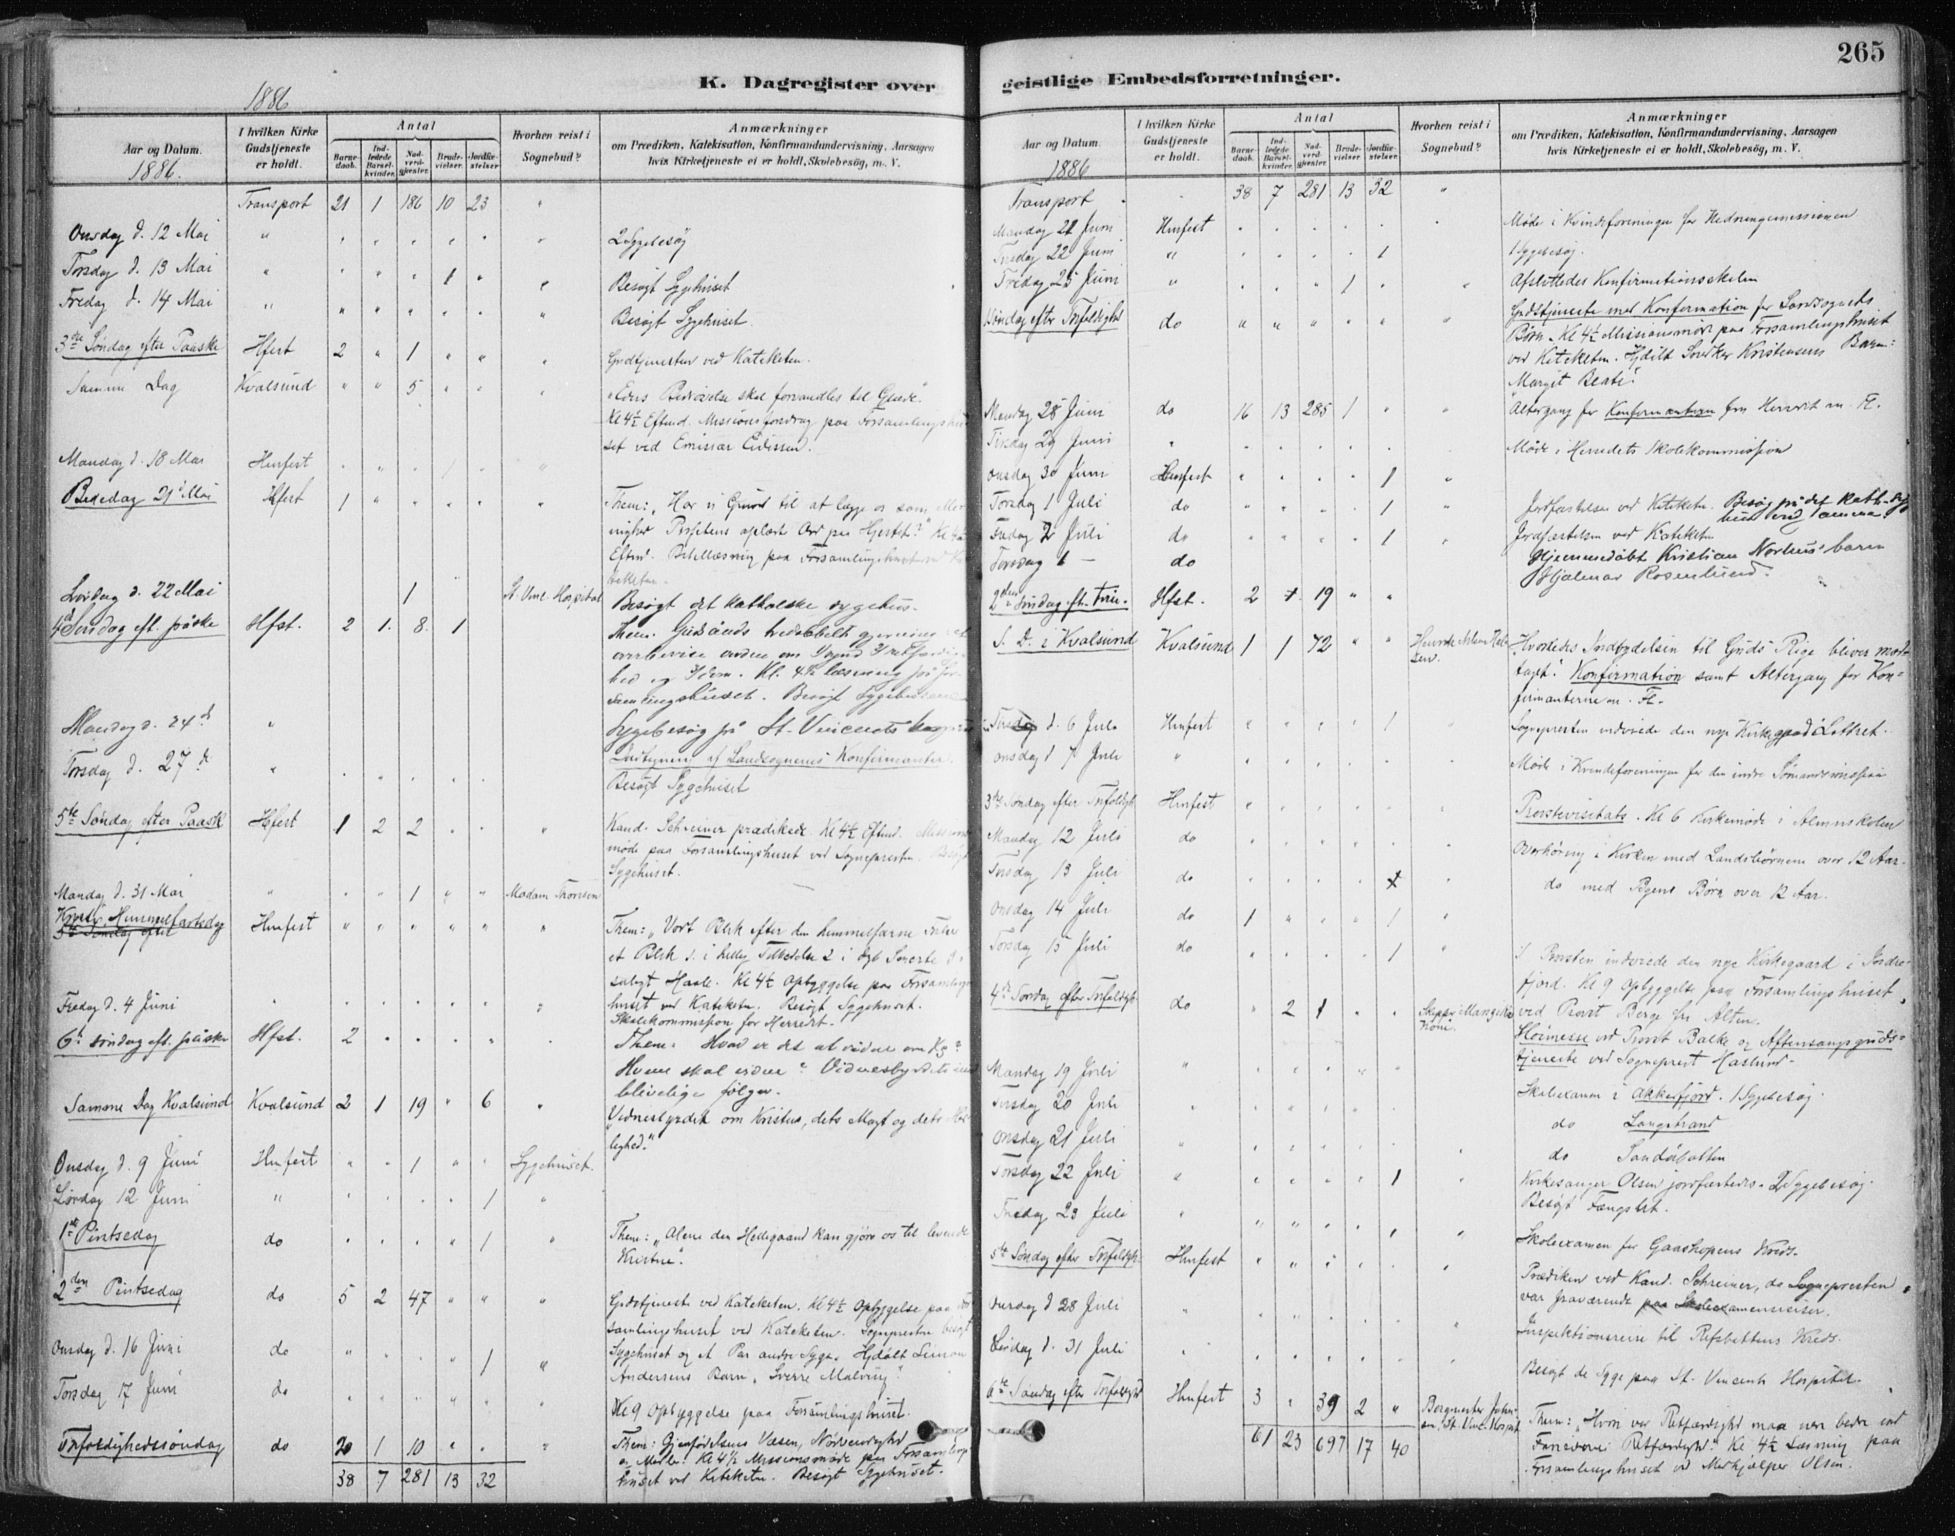 265
K. Dagregister over geistlige Embedsforretninger.
1886
Aar og Datum.
1886.
I hvilken Kirke
Gudstjeneste
er holdt.
Antal
Barne-
daab.
Ind-
ledede
Barsel-
kvinder.
Nad-
verd-
gjester.
Brude-
vielser.
Jordfæ-
stelser
Hvorhen reist i
Sognebud?
Anmærkninger
om Prædiken, Katekisation, Konfirmandundervisning, Aarsagen
hvis Kirketjeneste ei er holdt, Skolebesøg, m. V.
Transport 21 1 186 10 23 "
Onsdag d. 12 Mai " " " " " " " 2 Sygebesøg
Torsdag d. 13 Mai " " " " 1 " " Besøgt Sygehuset
Fredag d. 14 Mai " " " " " " " Besøgt Sygehuset.
3die Søndag efter Paaske Hfest 2 " 1 " " " Gudstjenesten ved Kateketen.
Samme Dag Kvalsund " " 5 " " " "Eders Bedrøvelse skal forvandles til Glæde".
Kl 4½ Efterm. Missionsforedrag paa Forsamlingshu
set ved Emissær Eidissen.
Mandag d. 18 Mai Hmfest " " " 1 " "
Bededag 21d Mai Hfest 1 " " " " " Them: "Har vi Grund til at lægge os som
Profetens Ord paa Hjertet?" Kl 4½
Efterm. Bibellæsning paa Forsamlingshuset ved Ka
teketen.
Lørdag d. 22 Mai 1 St. Vinc. Hospital Besøgt det katholske sygehus.
4d Søndag eft. påske Hfst. 2 1. 8. 1 Them. Guds ånds tredobbelt gjerning
overbevise verden om Synd Retfærdig
hed og Dom. Kl. 4½ læsning på For
samlingshuset. Besøgt Sygehuset
Mandag d. 24d " Sygebesøg på St. Vincents
Torsdag d. 27d " Indtegnen af Landsognenes Konfirmanter.
Besøgt Sygehuset
5te Søndag efter Paaske Hfest 1 2 2 " " " Kand. Schreiner prædikede Kl 4½ Efterm. Missions
møde paa Forsamlingshuset ved Sognepresten. Besøgt
Sygehuset.
Mandag d. 31 Mai " " " 1 " " Madam Thomsen
Kristi Himmelfartsdag
5te Søndag efter Hmfest " " " " " " Them: "Vort Blik efter den himmelfarne Frelser
et Blik 1. i hellig Tilbedelse 2 i dyb Smerte 3
saligt Haab. Kl 4½ Opbyggelse paa Forsamlings
huset ved Kateketen. Besøgt Sygehuset.
Fredag d. 4 Juni Skolekommission for Herredet.
6te søndag eft. påske Hfst. 2 Them: Hvad er det at vidne om Ks?
Hvem skal vidne? Vidnesbyrdets
blivelige følger.
Samme Dag Kvalsund Kvalsund 2 1 19 " 6 " "Vidnesbyrdet om Kristus, dets Magt og dets Her
lighed."
Onsdag d. 9 Juni Hmfest " " 1 " " Sygehuset.
Lørdag 12 Juni " " " " " 1 "
1ste Pintsedag do " " " " 1 " Them: "Alene den Helligaand kan gjøre os til levende
Kristne".
2den Pintsedag do 5 2 47 " " " Gudstjeneste ved Kateketen. Kl 4½ Opbyggelse paa For
samlingshuset ved Kateketen. Sognepresten besøgt
Onsdag d. 16 Juni do " " " " 1 " Sygehuset og et Par andre Syge. Hjdøbt Simon
Andersens Barn, Sverre Malving".
Torsdag 17 Juni do " " " " " " Kl 9 Opbyggelse paa Forsamlingshuset.
Trefoldighedssøndag do 20 1 10 " " " Them: Gjenfødelsens Væsen, Nødvendighed
og Midler. Kl 4½ Missionsmøde paa Forsamlings
38 7 281 13 32 huset ved Kateketen. Besøgt Sygehuset.
Aar og Datum.
1886
I hvilken Kirke
Gudstjeneste
er holdt.
Antal
Barne-
daab.
Ind-
ledede
Barsel-
kvinder.
Nad-
verd-
gjester.
Brude-
vielser.
Jordfæ-
stelser
Hvorhen reist i
Sognebud?
Anmærkninger
om Prædiken, Katekisation, Konfirmandundervisning, Aarsagen
hvis Kirketjeneste ei er holdt, Skolebesøg, m. V.
Transport 38 7 281 13 32 "
Mandag 21 Juni Hmfest " " " " " Møde i Kvindeforeningen for Hedningemissionen
Tirsdag 22 Juni " " " " " 1 1 Sygebesøg.
Fredag 25 Juni " " " " 1 " " Afsluttedes Konfirmationsskolen
Søndag efter Trefoldighd do " " " " " " Gudstjeneste med Konfirmation for Landsognets
Børn. Kl 4½ Missionsmøde paa Forsamlingshuset
ved Kateketen. Hjdøbt Snedker Kristensens Barn:
Margit Beate".
Mandag 28 Juni do 16 13 285 1 " " Altergang for Konfirmanterne fra Herredet m. Fl.
Tirsdag 29 Juni " Møde i Herredets Skolekommission
Onsdag 30 Juni Hmfest " " " " 1 "
Torsdag 1 Juli do " " " " 1 " Jordfæstelsen ved Kateketen. Besøg på det kath. syge
hus ved samme.
Fredag 2 Juli do " " " " 1 " Jordfæstelsen ved Kateketen
Torsdag 1 — do Hjemmedøbt Kristian Norhus' barn
Hjalmar Rosenlund.
2den Søndag eft. Trin. Hfst. 2 1 19 " "
S. D. i Kvalsund Kvalsund 1 1 72 " " "Hvorledes Indbydelsen til Guds Rige bliver mod-
taget". Konfirmation samt Altergang for Kon-
firmanterne m. Fl.
Tirsdag d. 6 Juli Hmfest " " " " 1 " Sognepresten indviede den nye Kirkegaard i Lettret.
Onsdag d 7 Juli " Møde i Kvindeforeningen for den indre Sømandsmission
3die Søndag efter Trefoldigh. Hmfest " " " " " " Provstevisitats. Kl 6 Kirkemøde i Almueskolen
Mandag 12 Juli do " " " " " " Overhøring i Kirken med Landsbørnene over 12 Aar.
Tirsdag 13 Juli do " " " " 1 " do med Byens Børn over 12 Aar.
Onsdag 14 Juli do 1 " " " 1 "
Torsdag 15 Juli do " " " " 1 " Provsten indviede den nye Kirkegaard i
fjord. Kl 9 Opbyggelse paa Forsamlingshuset
4de Søndag efter Trefoldigh. do " 2 1 " " Skipper
Kone. ved Provst Berge fra Alten.
Høimesse ved Provst Balke og Aftensangsguds-
tjeneste ved Sogneprest Haslund.
Mandag 19 Juli " Skolexamen i Akkarfjord. 1 Sygebesøg.
Tirsdag 20 Juli " do Langstrand
Onsdag 21 Juli " do Sandøbotten
Torsdag 22 Juli " " " " " 1 " Kirkesanger Olsen jordfæstedes. 2 Sygebesøg.
Besøgt Fængslet.
Fredag 23 Juli " Skoleexamen for Gaashopens Kreds.
5te Søndag efter Trefoldigh. Hmfest " " " " " " Prædiken ved Kand. Schreiner, da Sognepresten
var fraværende paa Skoleexamensreiser.
Onsdag d 28 Juli " Inspektionsreise til Refsbottens Kreds.
Lørdag d. 31 Juli " Besøgt de Syge paa St. Vincents Hospital.
6te Søndag efter Trefoldighd Hmfest 3 " 39 2 " St. Vinc. Hospit. Them: "Hvori vor Retfærdighd maa være bedre end
61 23 697 17 40 Farisæernes Retfærdighd". Kl 4½ Læsning paa
Forsamlingshuset ved Medhjælper Olsen.